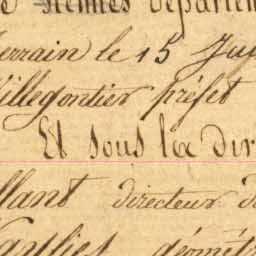 Rennes départem
Terrain le 15 Jui
Villegontier préfet
Et sous la dir
llant directeur d
géomét